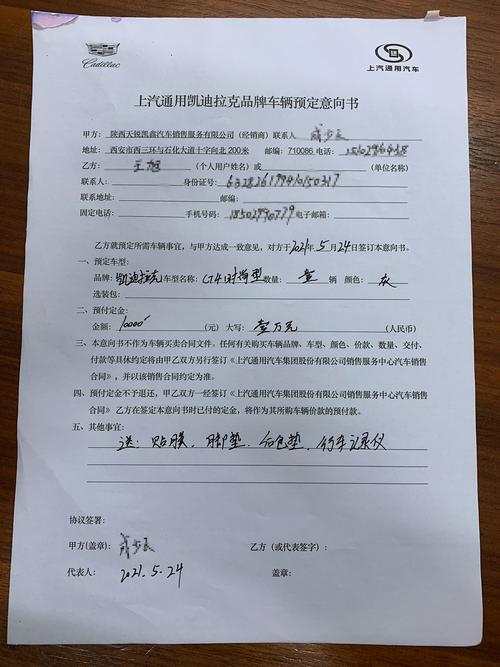 Cadillac
上汽通用汽车
上汽通用凯迪拉克品牌车辆预定意向书
甲方：陕西天锐凯鑫汽车销售服务有限公司（经销商）联系人
地址：西安市西三环与石化大道十字向北 200米 邮编：710086 电话：
乙方：王旭（个人用户姓名）或（单位名称）
联系人：身份证号：
联系地址：邮编：
固定电话：手机号码：电子邮箱：
乙方就预定所需车辆事宜，与甲方达成一致意见，对方于2021年5月24日签订本意向书。
一、预定车型：
品牌：凯迪拉克 车型名称：CT4时尚型 数量：壹 辆 颜色：灰
选装包：
二、预付定金：
金额：10000（元）大写：壹万元（人民币）
三、本意向书不作为车辆买卖合同文件。任何有关购买车辆品牌、车型、颜色、价款、数量、交付、
付款等具体约定将由甲乙方另行签订《上汽通用汽车集团股份有限公司销售服务中心汽车销售
合同》，并以该销售合同约定为准。
四、预付定金不予退还，甲乙双方一经签订《上汽通用汽车集团股份有限公司销售服务中心汽车销售
合同》乙方在签定本意向书时已付的定金，将作为其所购车辆价款的预付款。
五、其他事宜：
送：贴膜、脚垫、后备垫、行车记录仪
协议签署：
甲方(盖章)：
乙方（或代表签字）：
代表人：2021.5.24
盖章：